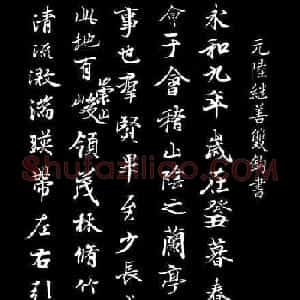 元陸継善雙鈎書
永和九年歲在癸丑暮春
會于會稽山陰之蘭亭
事也羣賢畢至少長
此地有崇山峻領茂林脩竹
清流激湍暎帶左右引
Shufaziliao.com